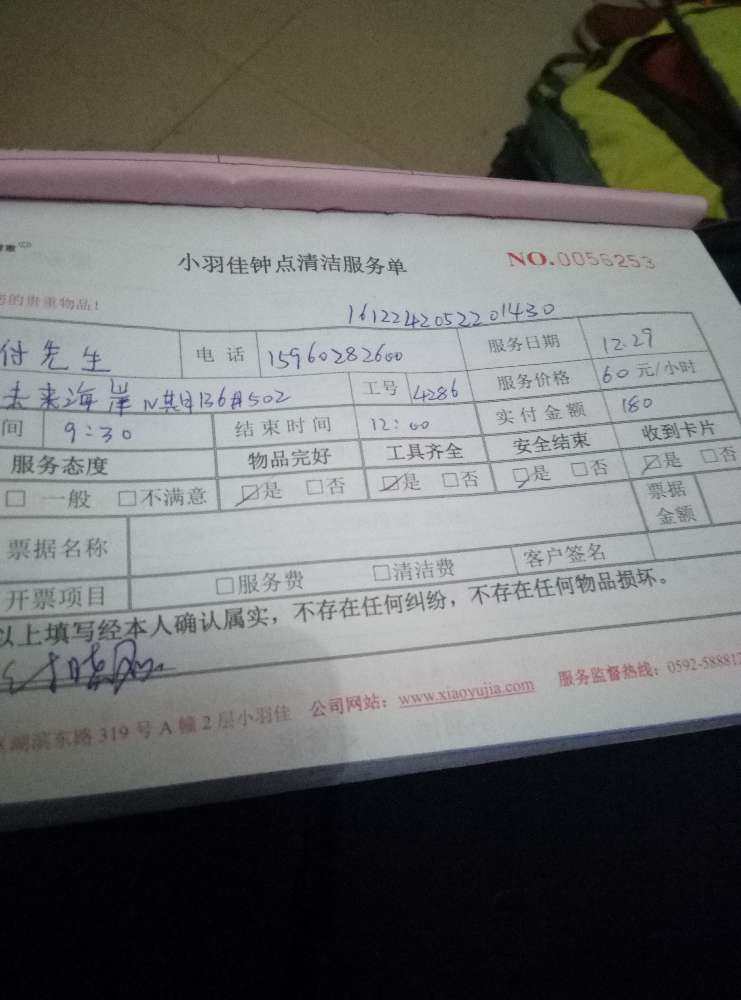 小羽佳钟点清洁服务单 NO.0056253
的贵重物品!
1612242052201430
付先生 电话 15960282600 服务日期 12.29
未来海岸 136 502 工号 4286 服务价格 60元/小时
间 9:30 结束时间 12:00 实付金额 180
服务态度 物品完好 工具齐全 安全结束 收到卡片
□ 一般 □不满意 ☑是 □否 ☑是 □否 ☑是 □否 ☑是 □否
票据名称 票据金额
开票项目 □服务费 □清洁费 客户签名
以上填写经本人确认属实,不存在任何纠纷,不存在任何物品损坏。
湖滨东路319号A幢2层小羽佳 公司网站:www.xiaoyujia.com 服务监督热线:0592-588812